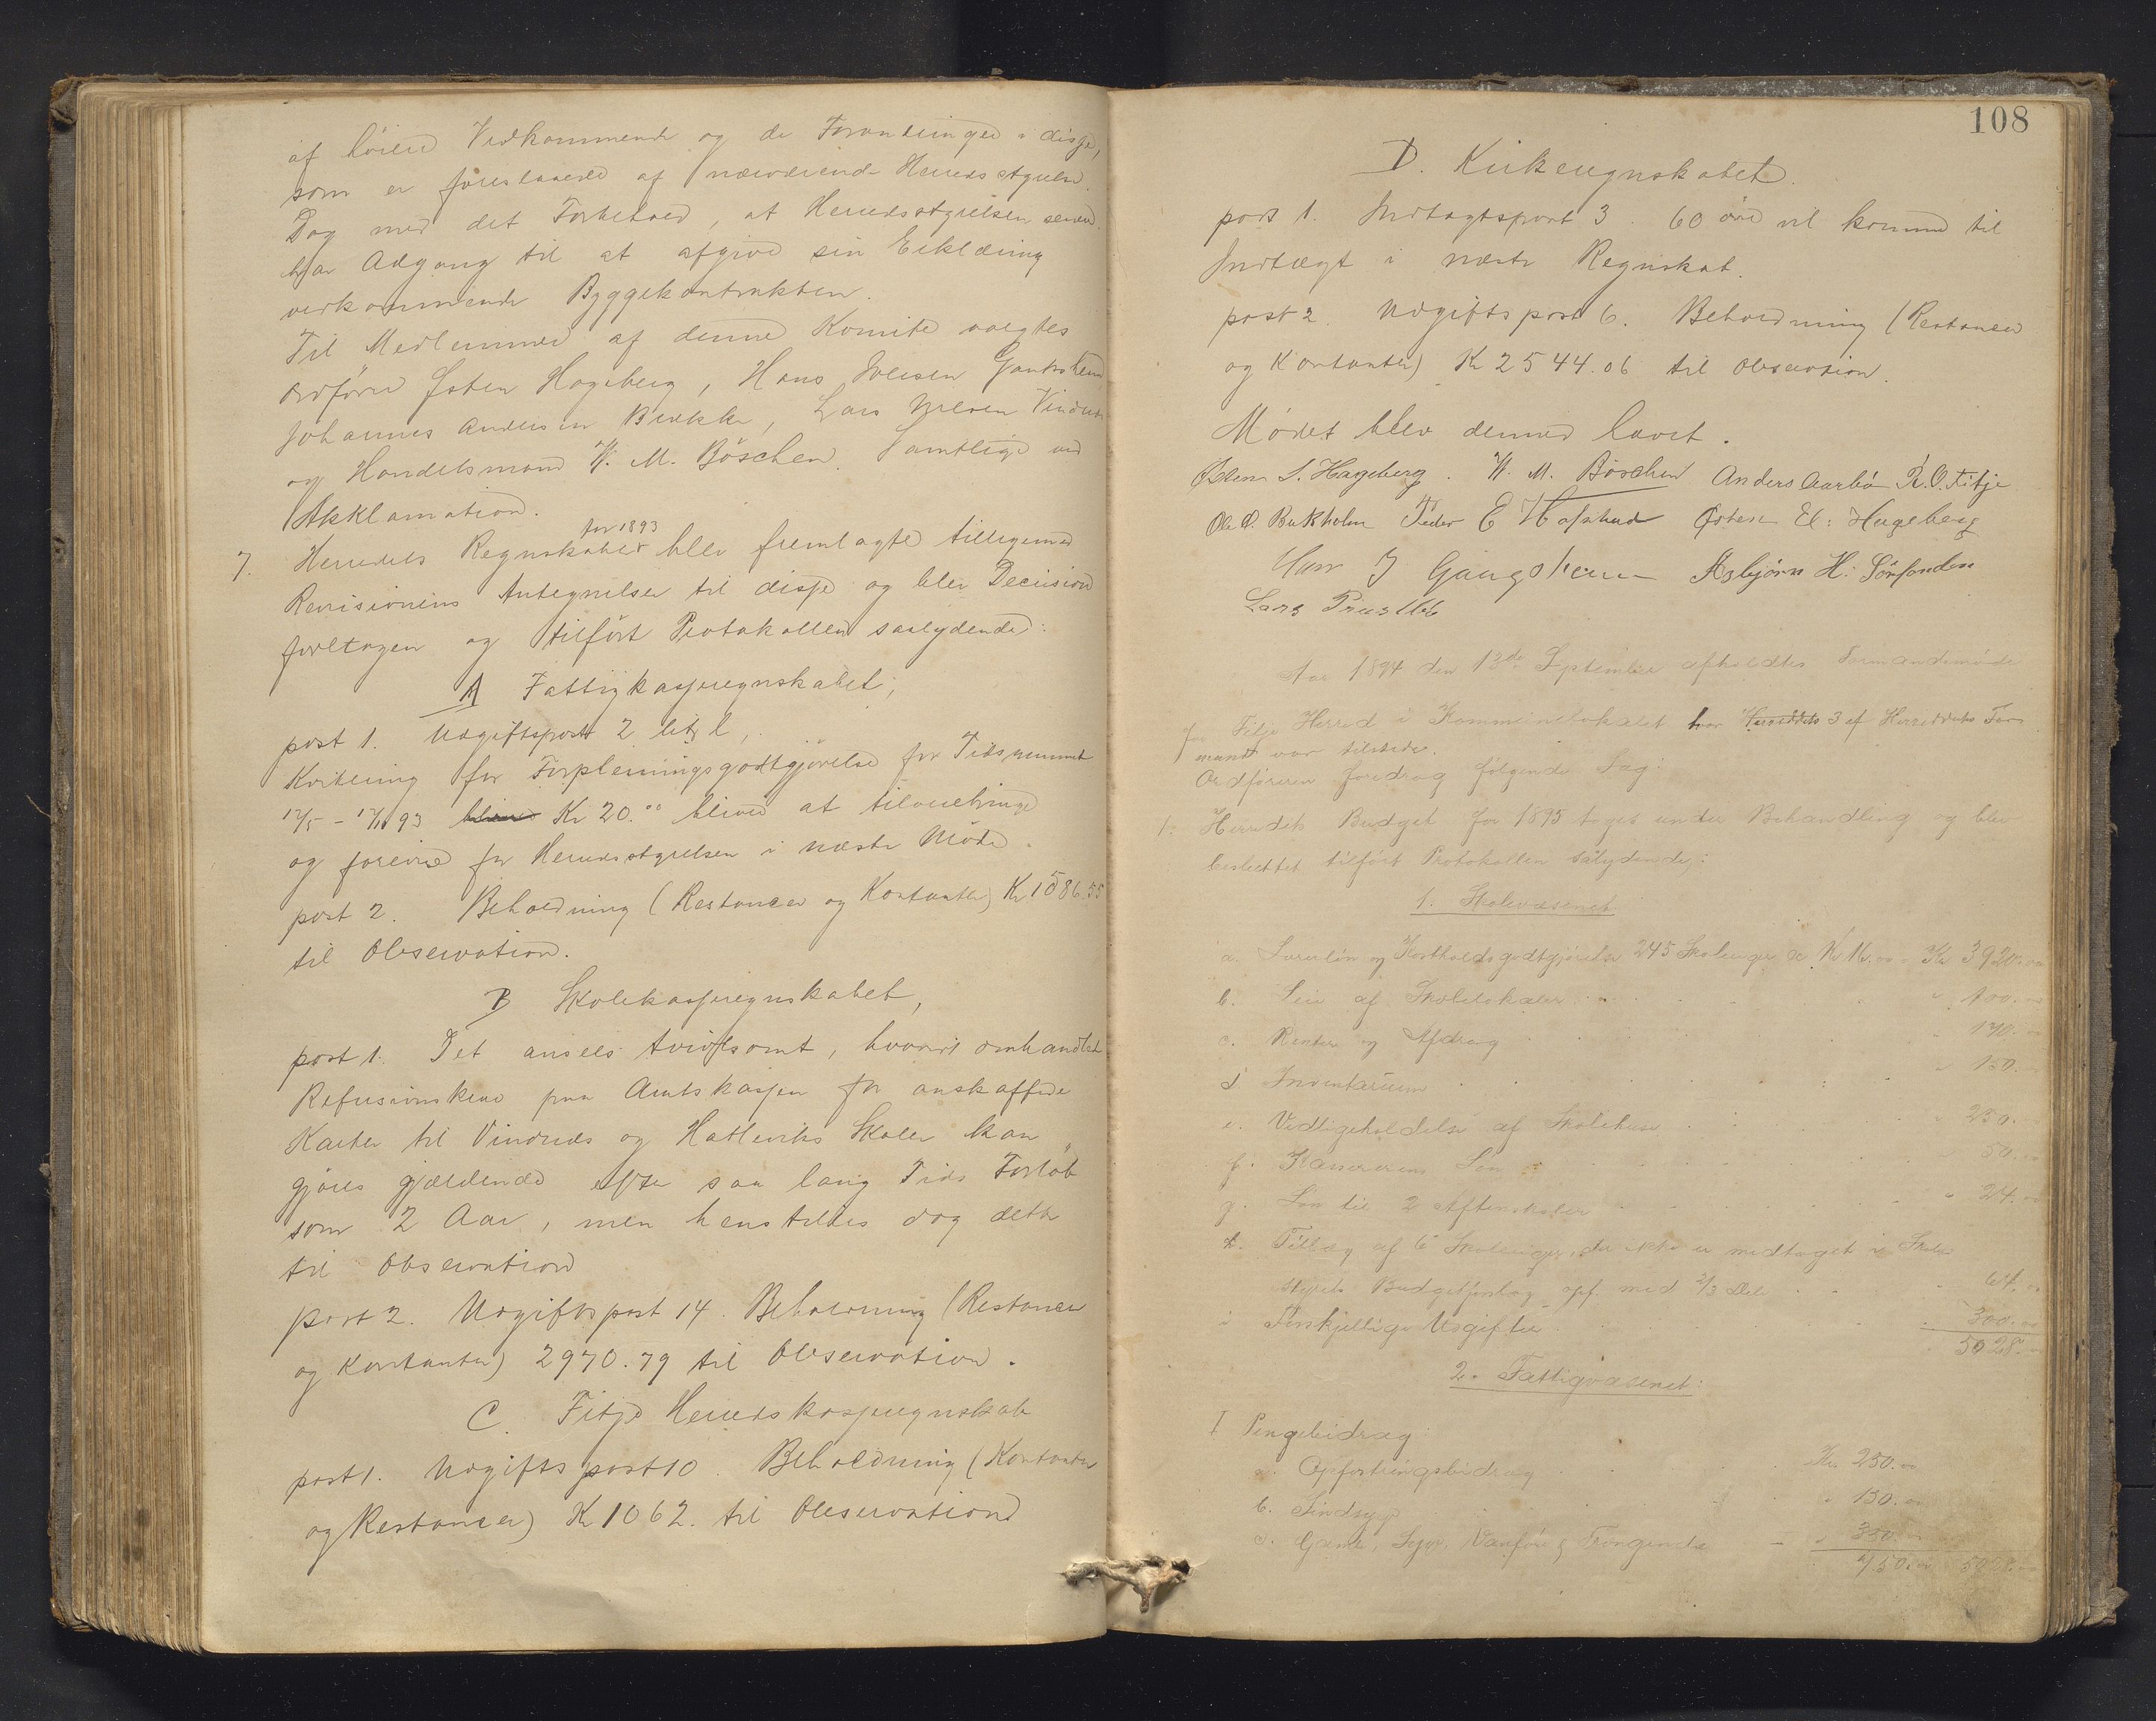 af höiere Vedkommende og de Forandringer i disse,
som er foreslaaede af nærværende Herredsstyrelse.
Dog med det Forbehold, at Herredsstyrelsen senere
har Adgang til at afgive sin Erklæring
vedkommende Byggekontrakten.
Til Medlemmer af denne Komite valgtes
Ordförer Østen Hageberg, Hans
Johannes Andersen Brekke, Lars Nilsen
og Handelsmand W. M. Böschen. Samtlige ved
Akklamation.
for 1893
7. Herredets Regnskaber blev fremlagte tilligemed
Revisionens Antegnelser til disse og blev Decision
foretagen og tilfört Protokollen saalydende:
A Fattigkasseregnskabet,
post 1. Udgiftspost 2 litr. l,
Kvittering for Forpleiningsgodtgjörelse for Tidsrummet
93 Kr 20.00 blive at tilveiebringe
og forevise for Herredsstyrelsen i næste Möde.
post 2. Beholdning (Restancer og Kontanter) Kr 1586.55
til Observation.
B Skolekasseregnskabet,
post 1. Det ansees tvivlsomt, hvorvidt omhandlet
Refusionskrav paa Amtskassen for anskaffede
Karter til Vindnes og Hatleviks Skoler kan
gjöres gjældende efter saa lang Tids Forlöb
som 2 Aar, men henstilles dog dette
til Observation
post 2. Udgiftspost 14. Beholdning (Restancer
og Kontanter) 2970.79 til Observation.
C. Fitje Herredskasseregnskab
post 1. Udgiftspost 10. Beholdning (Kontanter
og Restancer) K 1062. til Observation
108
D. Kirkeregnskabet.
post 1. Indtægtspost 3. 60 öre vil komme til
Indtægt i næste Regnskab.
post 2. Udgiftspost 6. Beholdning (Restancer
og Kontanter) Kr 2544.06 til Observation.
Mødet blev dermed hævet.
Østen S. Hageberg. W. M. Böschen Anders Aarbö R. O. Fitje
Ole O. Rukholm Peder E Hofstad Østen El: Hageberg
Hans J Asbjørn H. Sörfonden
Lars
Aar 1894 den 13de September afholdtes Formandsmøde
for Fitje Herred i Kommunelokalet hvor Herreddets 3 af Herreddets For-
mænd var tilstede.
Ordføreren foredrog følgende Sag:
1. Herredets Budget for 1895 toges under Behandling og blev
besluttet tilført Protokollen sålydende:
1. Skolevæsenet.
a. Lærerløn og Kostholdsgodtgjørelse 245 Skoleuger à Kr 16.00 - Kr 3920.00
b. Leie af Skolelokaler " 100.00
c. Renter og Afdrag " 170.00
d Inventarium " 150.00
e. Vedligeholdelse af Skolehuse " 250.00
f. Kassererens Løn " 50.00
g. Løn til 2 Aftenskoler " 24.00
h. Tillæg af 6 Skoleuger, der ikke er medtaget i Skole-
styrets Budgetforslag opf. med 2/3 Del " 64.00
i Forskjellige Udgifter " 300.00
5028.00
2. Fattigvæsenet:
I Pengebidrag:
a. Opfostringsbidrag Kr. 250.00
b. Sindsyge " 150.00
c. Gamle, Syge, Vanføre & Trængende " 350.00
750.00 5028.00